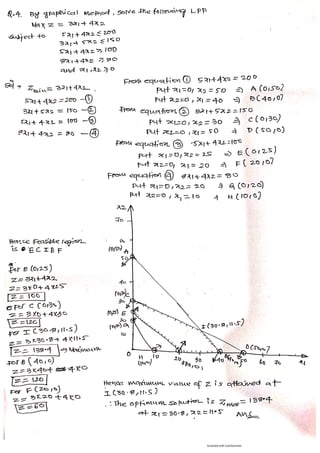 Q.4. By graphical Method, Solve the following LPP
Max Z = 3x1 + 4x2
Subject to 5x1 + 4x2 ≤ 200
3x1 + 5x2 ≤ 150
5x1 + 4x2 ≥ 100
8x1 + 4x2 ≥ 80
and x1, x2 ≥ 0
Zmin = 3x1 + 4x2
5x1 + 4x2 = 200 - ①
3x1 + 5x2 = 150 - ②
5x1 + 4x2 = 100 - ③
8x1 + 4x2 = 80 - ④
From equation ① 5x1 + 4x2 = 200
Put x1 = 0, x2 = 50 ⇒ A (0,50)
Put x2 = 0, x1 = 40 ⇒ B (40,0)
From equation ② 3x1 + 5x2 = 150
Put x1 = 0, x2 = 30 ⇒ C (0,30)
Put x2 = 0, x1 = 50 ⇒ D (50,0)
From equation ③ 5x1 + 4x2 = 100
Put x1 = 0, x2 = 25 ⇒ E (0,25)
Put x2 = 0, x1 = 20 ⇒ F (20,0)
From equation ④ 8x1 + 4x2 = 80
Put x1 = 0, x2 = 20 ⇒ G (0,20)
Put x2 = 0, x1 = 10 ⇒ H (10,0)
Hence Feasible region
is ECIBF
for E (0,25)
Z = 3x1 + 4x2
Z = 3×0 + 4×25
Z = 100
for C (0,30)
Z = 3×0 + 4×30
Z = 120
for I (30.8, 11.5)
Z = 3×30.8 + 4×11.5
Z = 138.4 → Maximum
for B (40,0)
Z = 3×40 + 4×0
Z = 120
for F (20,0)
Z = 3×20 + 4×0
Z = 60
x2
I (30.8, 11.5)
D (50,0)
x1
Hence maximum value of Z is attained at
I (30.8, 11.5)
∴ The optimum solution is Zmax = 138.4
at x1 = 30.8, x2 = 11.5 Ans
Scanned with CamScanner